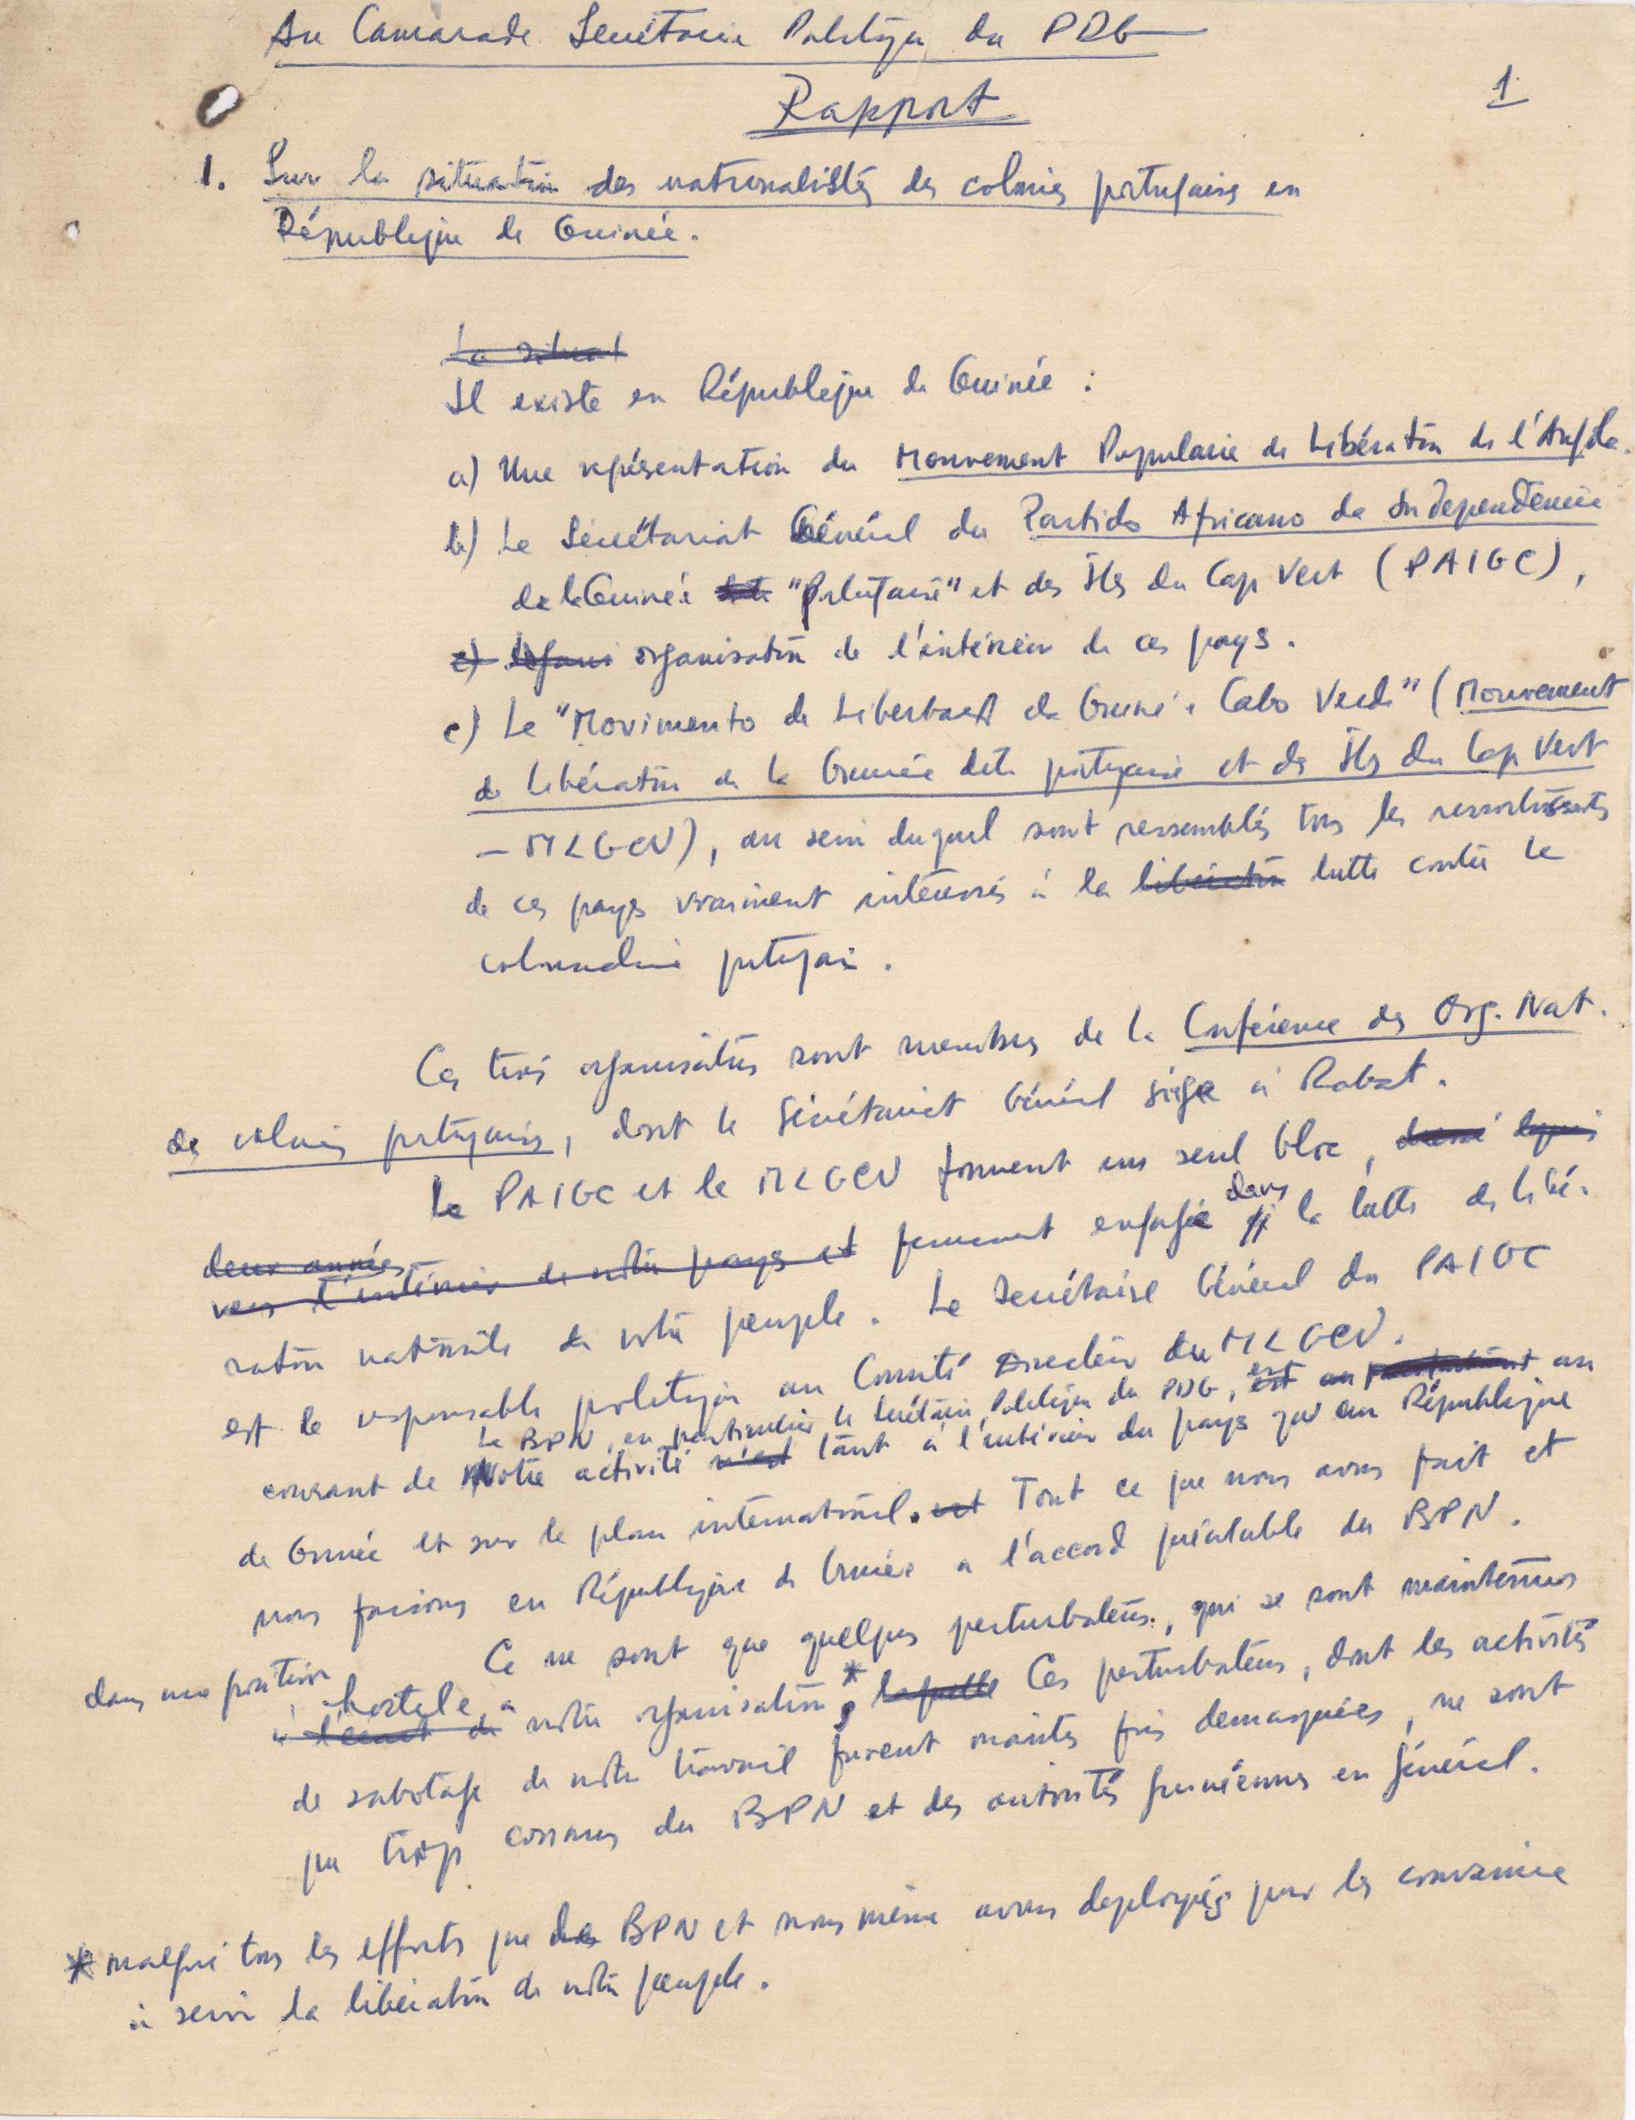 Au Camarade Secrétaire Politique du PDG
Rapport
1
1. Sur la situation des nationalistes des colonies portugaises en
République de Guinée.
La situat
Il existe en République de Guinée :
a) Une représentation du Mouvement Populaire de Libération de l'Angola.
b) Le Secrétariat Général du Partido Africano da Independência
de la Guinée dite "Portugaise" et des Îles du Cap Vert (PAIGC),
c) organisation de l'intérieur de ces pays.
c) Le "Movimento de Libertação da Guiné e Cabo Verde" (Mouvement
de Libération de la Guinée dite portugaise et des Îles du Cap Vert
– MLGCV), au sein duquel sont rassemblés tous les ressortissants
de ces pays vraiment intéressés à la libération lutte contre le
colonialisme portugais.
Ces trois organisations sont membres de la Conférence des Org. Nat.
des colonies portugaises, dont le Secrétariat Général siège à Rabat.
Le PAIGC et le MLGCV forment un seul bloc, depuis
deux années
vers l'intérieur de notre pays et fermement engagé dans la lutte de libé-
ration nationale de notre peuple. Le Secrétaire Général du PAIGC
est le responsable politique au Comité Directeur du MLGCV.
Le BPN, en particulier le Secrétaire Politique du PDG, est au parfaitement au
courant de Notre activité n'est tant à l'intérieur du pays qu'en République
de Guinée et sur le plan international. est Tout ce que nous avons fait et
nous faisons en République de Guinée a l'accord préalable du BPN.
Ce ne sont que quelques perturbateurs, qui se sont maintenus
dans une position
hostile à
à l'écart de notre organisation*, laquelle Ces perturbateurs, dont les activités
de sabotage de notre travail furent maintes fois demasquées, ne sont
que trop connus du BPN et des autorités guinéennes en général.
* malgré tous les efforts que le BPN et nous même avons deployés pour les convaincre
à servir la libération de notre peuple.